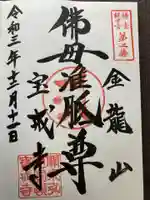 金龍山
佛母准胝尊
宝戒寺
令和三年十二月十一日